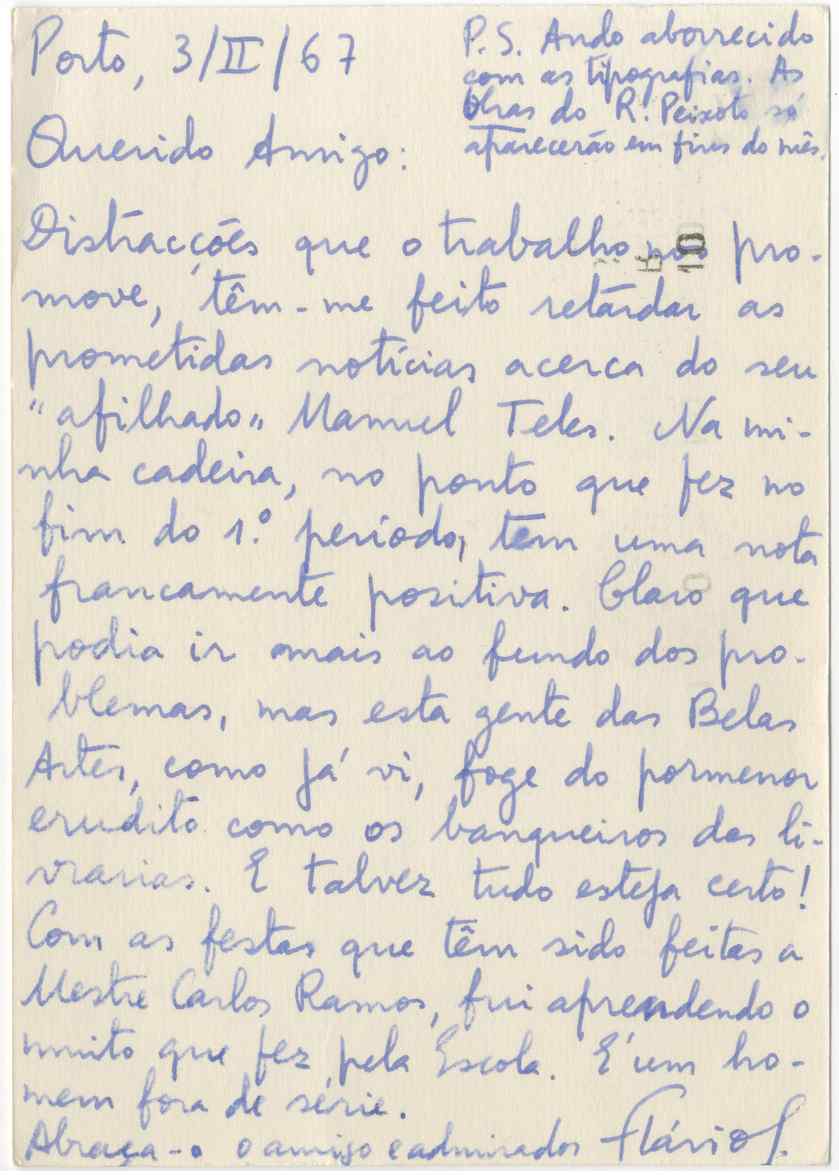 Porto, 3/II/67
P.S. Ando aborrecido
com as tipografias. As
Obras do R. Peixoto só
aparecerão em fins do mês.
Querido Amigo:
Distracções que o trabalho nos pro-
move, têm-me feito retardar as
prometidas notícias acerca do seu
"afilhado" Manuel Teles. Na mi-
nha cadeira, no ponto que fez no
fim do 1.º período, tem uma nota
francamente positiva. Claro que
podia ir mais ao fundo dos pro-
blemas, mas esta gente das Belas
Artes, como já vi, foge do pormenor
erudito como os banqueiros das li-
vrarias. E talvez tudo esteja certo!
Com as festas que têm sido feitas a
Mestre Carlos Ramos, fui aprendendo o
muito que fez pela Escola. É um ho-
mem fora de série.
Abraça-o o amigo e admirador Flávio